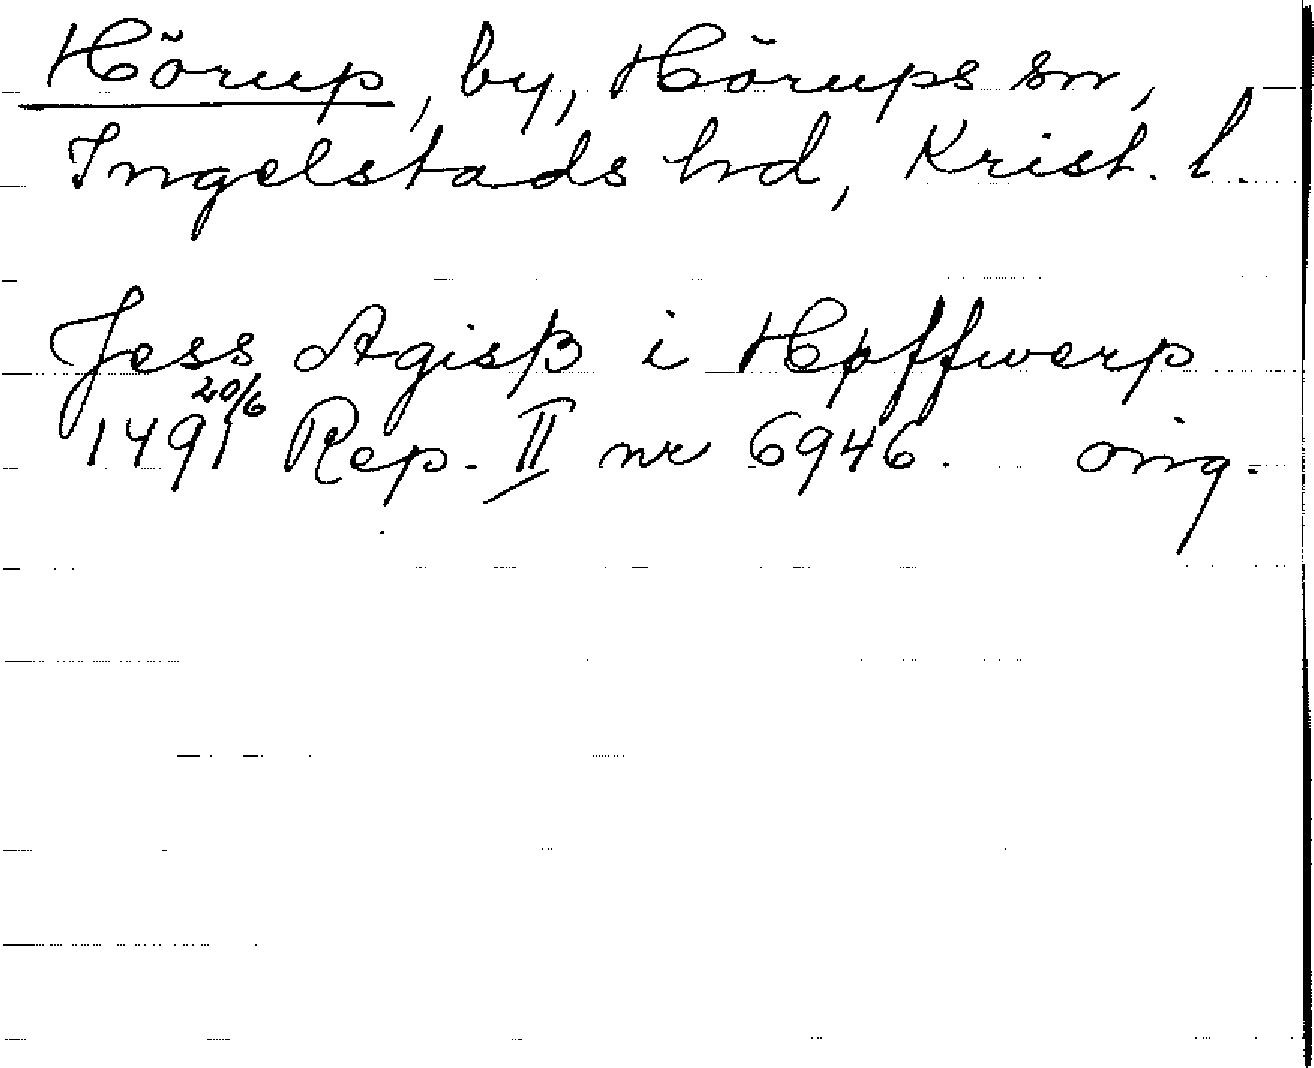 Hörup, by, Hörups sn,
Ingelstads hd, Krist. l.
Jess Agisß i Høffwerp
20/6
1491 Rep. II nr 6946. orig.